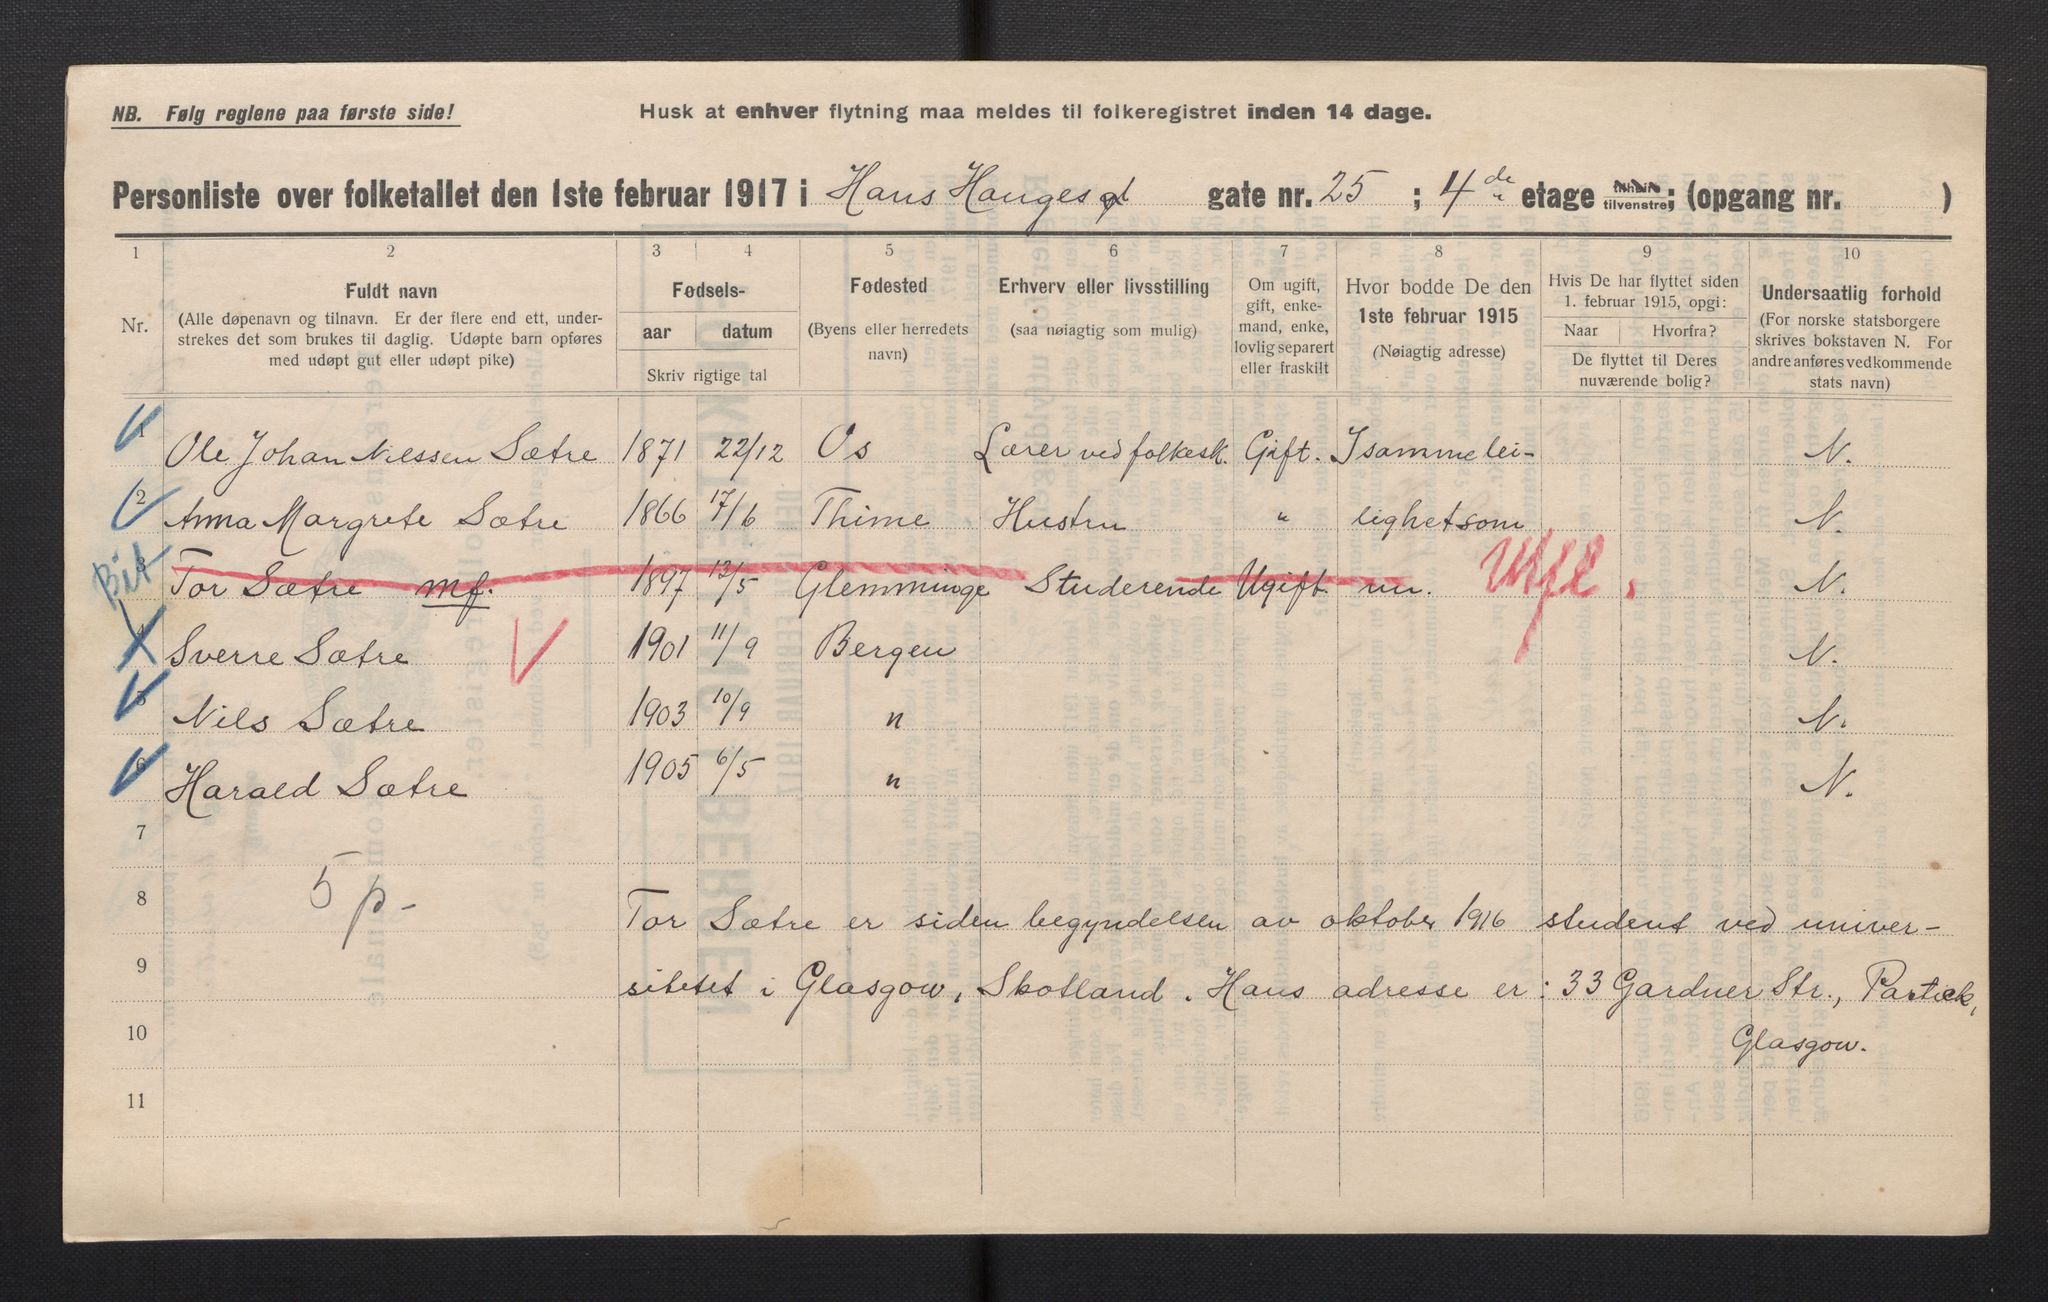 NB. Følg reglene paa første side!
Husk at enhver flytning maa meldes til folkeregistret inden 14 dage.
Personliste over folketallet den 1ste februar 1917 i Hans Hauges gt gate nr. 25 ; 4 de etage tilhøire tilvenstre; (opgang nr. )
1 2 3 4 5 6 7 8 9 10
Nr.
Fuldt navn
(Alle døpenavn og tilnavn. Er der flere end ett, under-
strekes det som brukes til daglig. Udøpte barn opføres
med udøpt gut eller udøpt pike)
Fødsels-
aar datum
Skriv rigtige tal
Fødested
(Byens eller herredets
navn)
Erhverv eller livsstilling
(saa nøiagtig som mulig)
Om ugift,
gift, enke-
mand, enke,
lovlig separert
eller fraskilt
Hvor bodde De den
1ste februar 1915
(Nøiagtig adresse)
Hvis De har flyttet siden
1. februar 1915, opgi:
Naar Hvorfra?
De flyttet til Deres
nuværende bolig?
Undersaatlig forhold
(For norske statsborgere
skrives bokstaven N. For
andre anføres vedkommende
stats navn)
1 Ole Johan Nilssen Sætre 1871 22/12 Os Lærer ved folkesk. Gift. I samme lei- N.
2 Anna Margrete Sætre 1866 17/6 Thime Hustru " lighet som N.
3 Tor Sætre mf. 1897 13/5 Glemminge Studerende Ugift. nu. Utfl. N.
4 Sverre Sætre 1901 11/9 Bergen N.
5 Nils Sætre 1903 10/9 " N.
6 Harald Sætre 1905 6/5 " N.
7
5 p-
8 Tor Sætre er siden begyndelsen av oktober 1916 student ved univer-
9 sitetet i Glasgow, Skotland. Hans adresse er: 33 Gardner Str., Partick,
10 Glasgow.
11